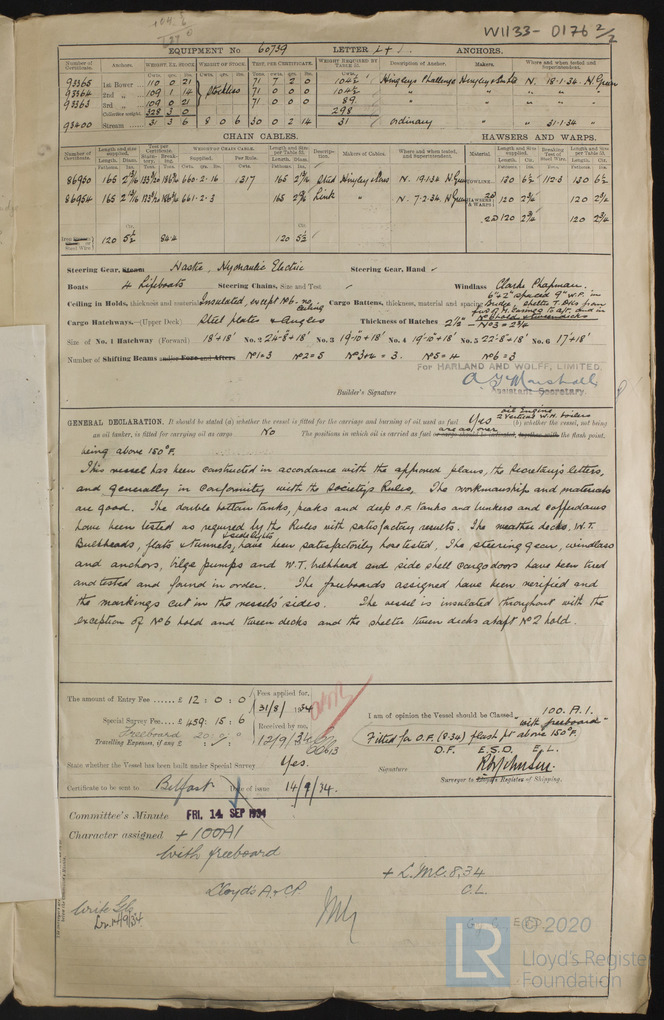 W1133-0176 2/2
EQUIPMENT No 60739 LETTER ANCHORS.
Number of Certificate. Anchors. WEIGHT, EX. STOCK. WEIGHT OF STOCK. TEST, PER CERTIFICATE. WEIGHT REQUIRED BY TABLE 31. Description of Anchor. Makers. Where and when tested and Superintendent.
93365 1st Bower 110 0 21 Stockless 71 7 2 0 104½ Hingleys Challenge Hingley & Sons N. 18.1.34 H Green
93364 2nd „ 109 1 14 71 0 0 0 104½ " " "
93363 3rd „ 109 0 21 71 0 0 0 89 " " "
Collective weight. 328 3 0 298
93400 Stream 31 3 6 8 0 6 30 0 2 14 31 ordinary " " 31.1.34 "
CHAIN CABLES. HAWSERS AND WARPS.
Number of Certificate. Length and size supplied. Test per Certificate. WEIGHT OF CHAIN CABLE. Length and size per Table 31. Description. Makers of Cables. Where and when tested, and Superintendent. Material. Length and size supplied. Breaking Test of Steel Wire. Length and size per Table 31.
86950 165 660.2.16 1317 165 Stud Hingley & Sons N. 19.1.34 H Green TOWLINE 130 6½ 112.3 130 6½
86954 165 661.2.3 165 Link " N. 7.2.34 H Green HAWSERS & WARPS 120 2¾ 120 2¾
120 2¾ 120 2¾
Steel Wire 120 5½ 84.4 120 5½
Steering Gear, Steam Hastie, Hydraulic Electric Steering Gear, Hand ✓
Boats 4 Lifeboats Steering Chains, Size and Test ✓ Windlass Clarke Chapman.
Ceiling in Holds, thickness and material Insulated, except No 6 - no ceiling Cargo Battens, thickness, material and spacing 6"x2" spaced 9" W.P. in Bridge, Shelter T. Dks from
Cargo Hatchways.—(Upper Deck) Steel plates & Angles Thickness of Hatches 2½" - No 3 = 2¾
Size of No. 1 Hatchway (Forward) 18' x 18' No. 2 24'-8" x 18' No. 3 19'-10" x 18' No. 4 19'-10" x 18' No. 5 22'-8" x 18' No. 6 17' x 18'
Number of Shifting Beams and/or Fore and Afters No 1=3 No 2=5 No 3+4=3. No 5=4 No 6=3
For HARLAND AND WOLFF, LIMITED.
Builder's Signature A. F. Marshall
Assistant Secretary.
GENERAL DECLARATION. It should be stated (a) whether the vessel is fitted for the carriage and burning of oil used as fuel Yes oil Engine 2 Vertical W.H. boilers (b) whether the vessel, not being
an oil tanker, is fitted for carrying oil as cargo No The positions in which oil is carried as fuel are as over or cargo should be indicated, together with the flash point.
being above 150°F.
This vessel has been constructed in accordance with the approved plans, the Secretary's letters,
and generally in conformity with the Society's Rules. The workmanship and materials
are good. The double bottom tanks, peaks and deep O.F. tanks and bunkers and cofferdams
have been tested as required by the Rules with satisfactory results. The weather decks, W.T.
Bulkheads, flats & tunnels, & sidelights have been satisfactorily hose tested. The steering gear, windlass
and anchors, bilge pumps and W.T. bulkhead and side shell cargo doors have been tried
and tested and found in order. The freeboards assigned have been verified and
the markings cut in the vessels' sides. The vessel is insulated throughout with the
exception of No 6 hold and tween decks and the shelter tween decks abaft No 2 hold.
The amount of Entry Fee ...... £ 12 : 0 : 0 Fees applied for, 31/8/1934
Special Survey Fee .... £ 459 : 15 : 6 Received by me, 12/9/34
Freeboard 20 : 0 : 0
Travelling Expenses, if any £ : :
I am of opinion the Vessel should be Classed 100.A.1. "with freeboard"
Fitted for O.F. (8.34) flash pt above 150°F.
D.F. E.S.D. E.L.
State whether the Vessel has been built under Special Survey Yes.
Signature
Surveyor to Lloyd's Register of Shipping.
Certificate to be sent to Belfast Date of issue 14/9/34.
Committee's Minute FRI. 14 SEP 1934
Character assigned + 100A1
With freeboard
+ L.M.C. 8,34
Lloyd's A & CP C.L.
© 2020
LR
Lloyd's Register
Foundation